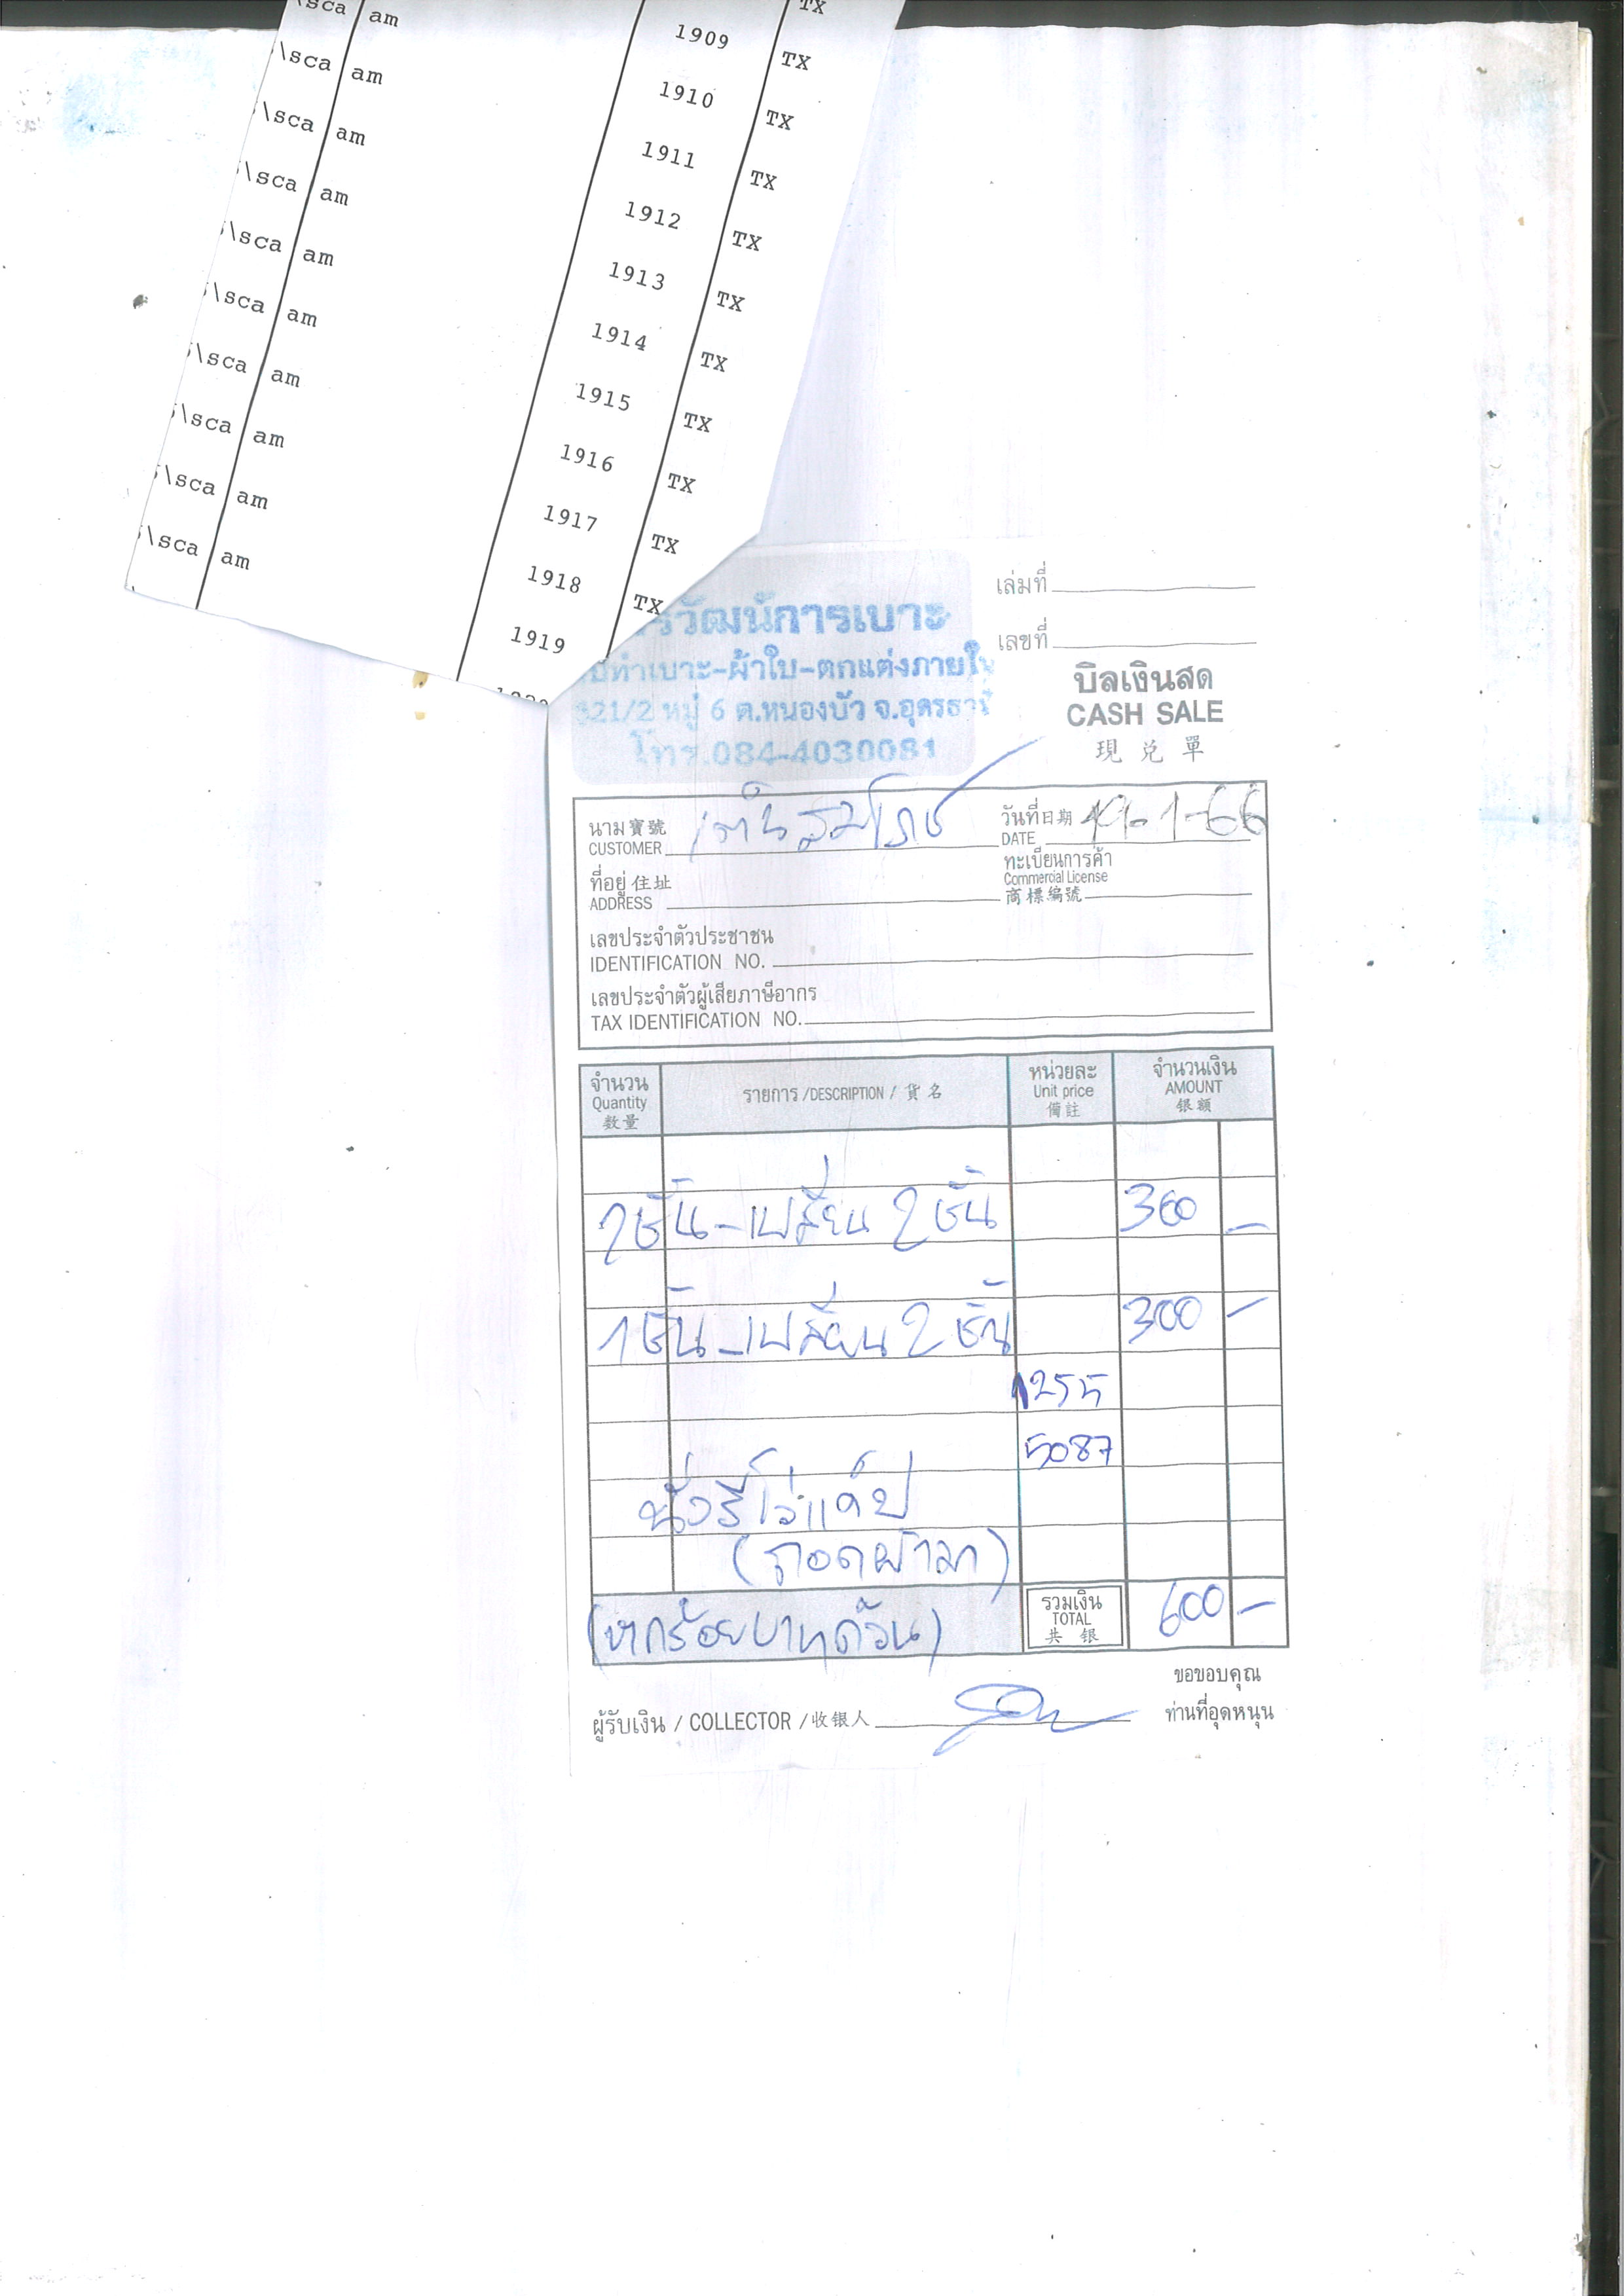 \sca am 1909 TX
\sca am 1910 TX
\sca am 1911 TX
\sca am 1912 TX
\sca am 1913 TX
\sca am 1914 TX
\sca am 1915 TX
\sca am 1916 TX
\sca am 1917 TX
\sca am 1918 TX
1919
รวัฒน์การเบาะ
ทำเบาะ-ผ้าใบ-ตกแต่งภายใน
321/2 หมู่ 6 ต.หนองบัว จ.อุดรธานี
โทร.084-4030081
เล่มที่
เลขที่
บิลเงินสด
CASH SALE
現兌單
นาม寶號
CUSTOMER
วันที่日期 19-1-66
DATE
ที่อยู่住址
ADDRESS
ทะเบียนการค้า
Commercial License
商標編號
เลขประจำตัวประชาชน
IDENTIFICATION NO.
เลขประจำตัวผู้เสียภาษีอากร
TAX IDENTIFICATION NO.
จำนวน
Quantity
数量
รายการ /DESCRIPTION / 貨名
หน่วยละ
Unit price
備註
จำนวนเงิน
AMOUNT
银额
2ชิ้น-เปลี่ยน 2 ชั้น 300 -
1ชิ้น-เปลี่ยน 2 ชั้น 300 -
1255
5087
(ถอดผ้ามา)
(หกร้อยบาทถ้วน)
รวมเงิน
TOTAL
共银
600 -
ผู้รับเงิน / COLLECTOR /收银人
ขอขอบคุณ
ท่านที่อุดหนุน